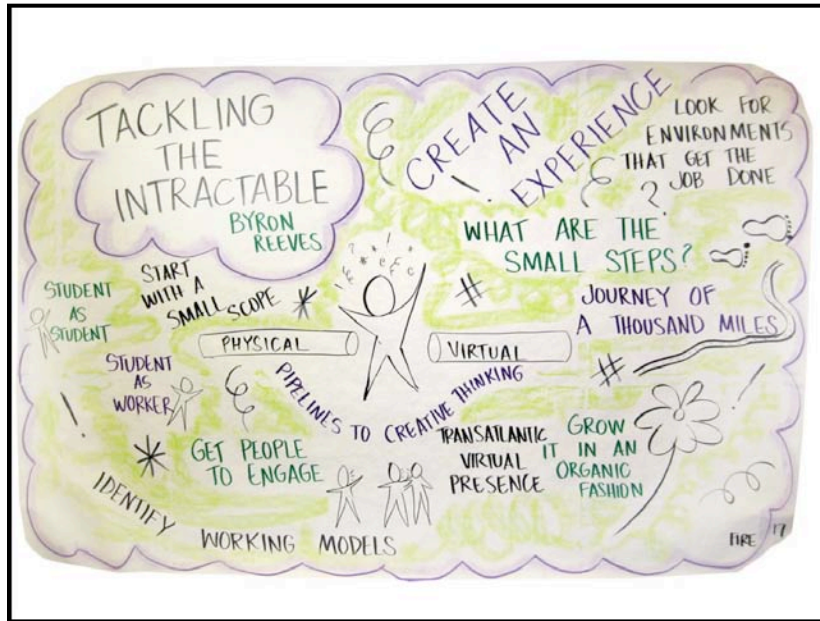 TACKLING
THE
INTRACTABLE
BYRON
REEVES
CREATE
AN
EXPERIENCE
LOOK FOR
ENVIRONMENTS
THAT GET THE
JOB DONE
?
WHAT ARE THE
SMALL STEPS?
STUDENT
AS
STUDENT
START
WITH A
SMALL SCOPE
PHYSICAL
VIRTUAL
JOURNEY OF
A THOUSAND MILES
STUDENT
AS
WORKER
PIPELINES TO CREATIVE THINKING
GET PEOPLE
TO ENGAGE
TRANSATLANTIC
VIRTUAL
PRESENCE
GROW
IT IN AN
ORGANIC
FASHION
IDENTIFY
WORKING MODELS
FIRE 17